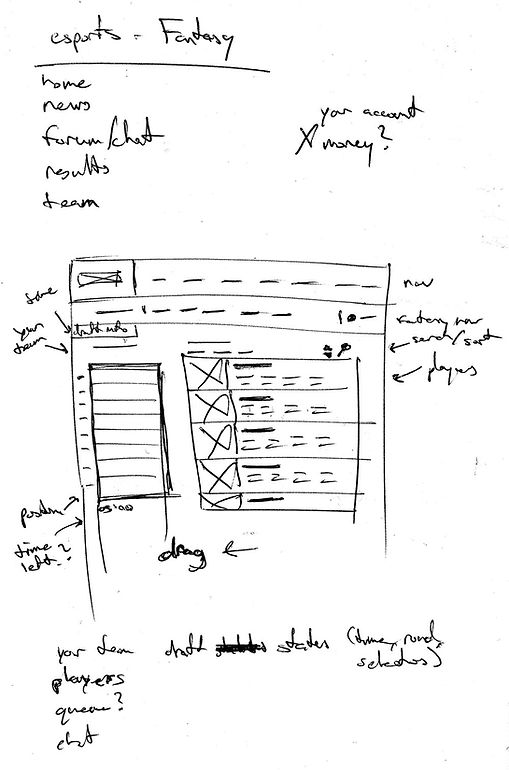 esports - Fantasy
home
news
forum/chat
results
team
your account
money?
nav
your
team
draft info
fantasy nav
search/sort
players
position
time
left?
00:00
drag ←
your team
draft states (time, round,
selections)
players
queue?
chat